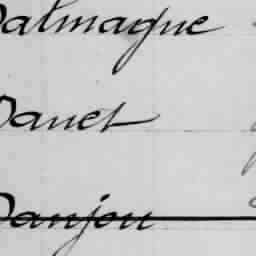 Dalmagne
Danet
Danjou